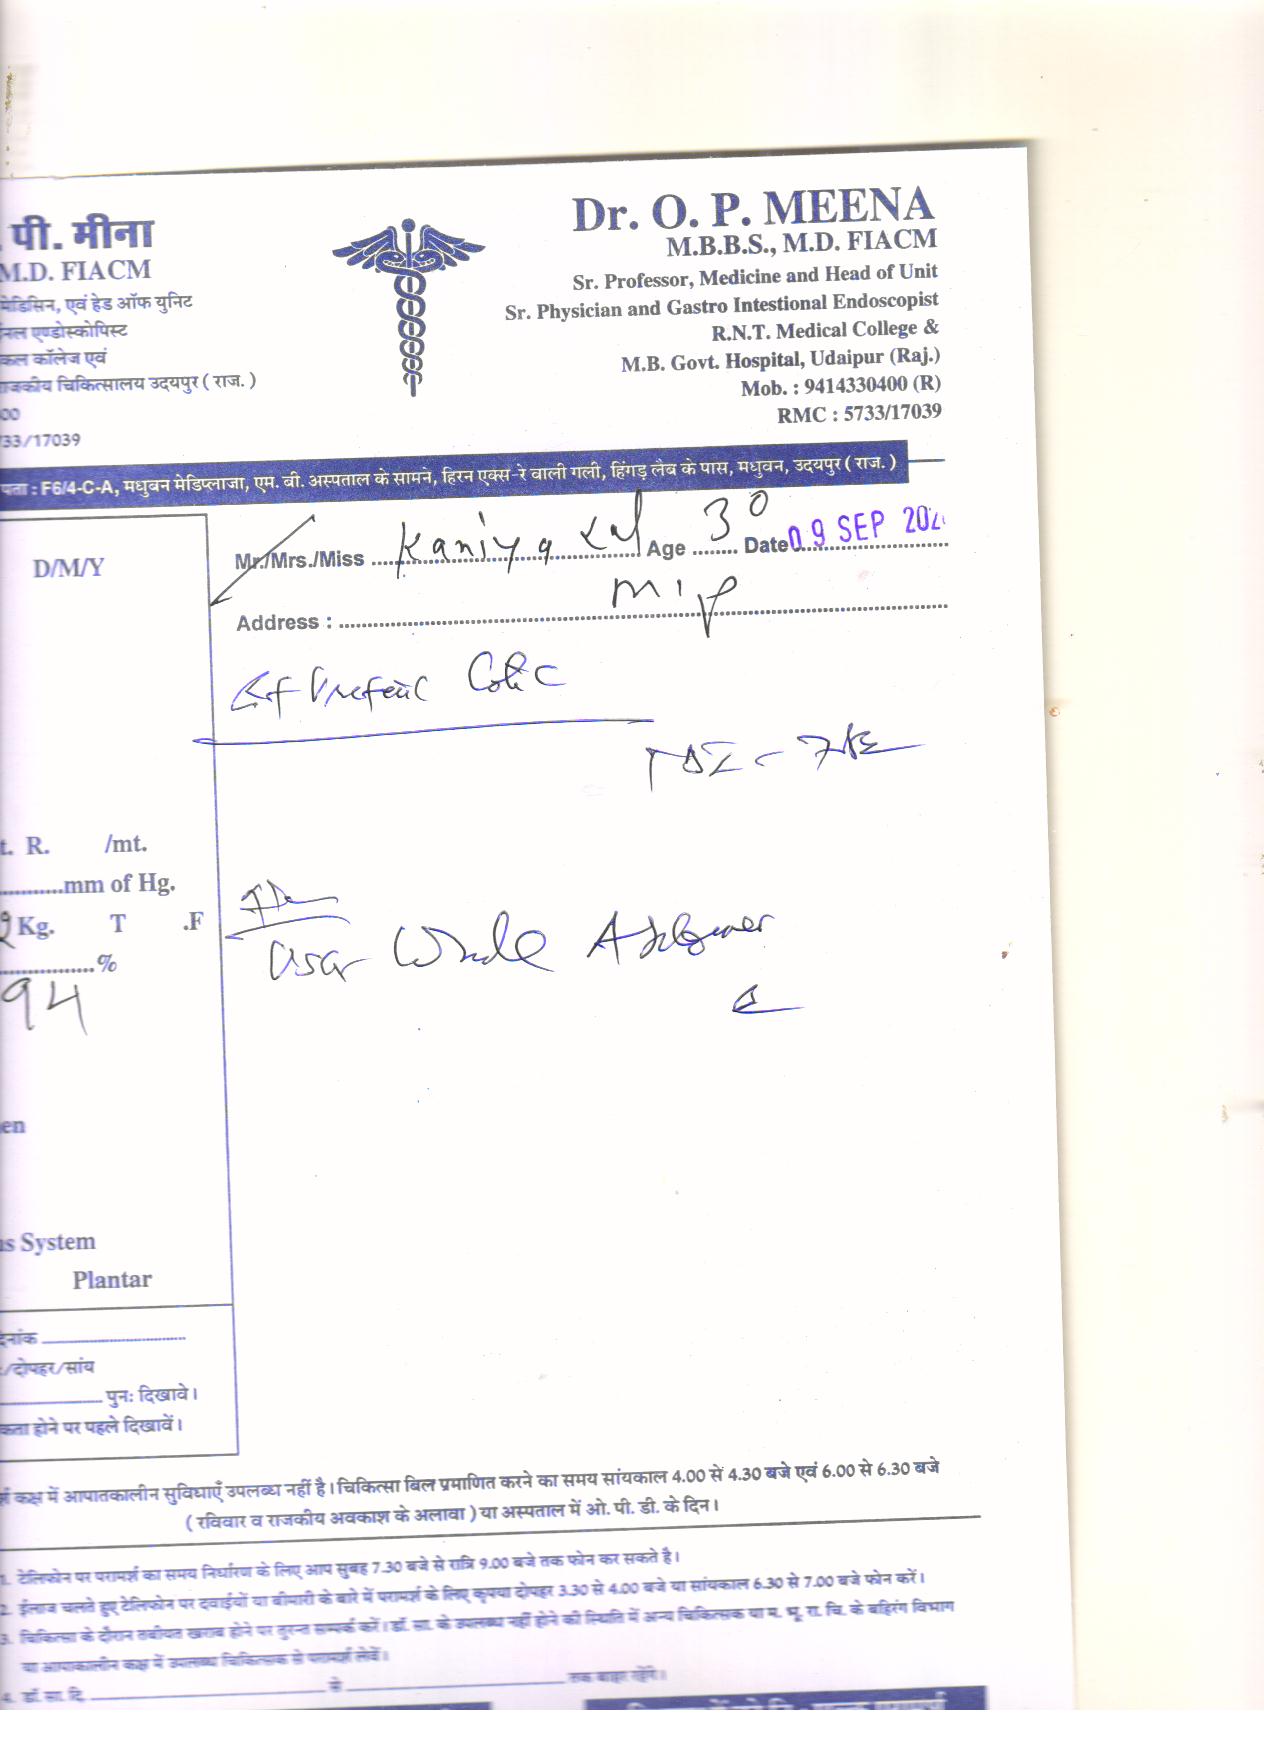 . पी. मीना
M.D. FIACM
मेडिसिन, एवं हेड ऑफ युनिट
नल एण्डोस्कोपिस्ट
कल कॉलेज एवं
राजकीय चिकित्सालय उदयपुर ( राज. )
00
33/17039
Dr. O. P. MEENA
M.B.B.S., M.D. FIACM
Sr. Professor, Medicine and Head of Unit
Sr. Physician and Gastro Intestional Endoscopist
R.N.T. Medical College &
M.B. Govt. Hospital, Udaipur (Raj.)
Mob. : 9414330400 (R)
RMC : 5733/17039
पता : F6/4-C-A, मधुबन मेडिप्लाजा, एम. बी. अस्पताल के सामने, हिरन एक्स-रे वाली गली, हिंगड़ लैब के पास, मधुवन, उदयपुर ( राज. )
Mr./Mrs./Miss Kaniya Lal Age 30 Date 09 SEP 202
Address :
D/M/Y
Colic
t. R. /mt.
mm of Hg.
Kg. T .F
%
94
USG Whole Abdomen
en
us System
Plantar
दिनांक
:/दोपहर/सांय
पुनः दिखावे।
कता होने पर पहले दिखावें।
र्श कक्ष में आपातकालीन सुविधाएँ उपलब्ध नहीं है। चिकित्सा बिल प्रमाणित करने का समय सांयकाल 4.00 से 4.30 बजे एवं 6.00 से 6.30 बजे
( रविवार व राजकीय अवकाश के अलावा ) या अस्पताल में ओ. पी. डी. के दिन।
1. टेलिफोन पर परामर्श का समय निर्धारण के लिए आप सुबह 7.30 बजे से रात्रि 9.00 बजे तक फोन कर सकते है।
2. ईलाज चलते हुए टेलिफोन पर दवाईयों या बीमारी के बारे में परामर्श के लिए कृपया दोपहर 3.30 से 4.00 बजे या सांयकाल 6.30 से 7.00 बजे फोन करें।
3. चिकित्सा के दौरान तबीयत खराब होने पर तुरन्त सम्पर्क करें। डॉ. सा. के उपलब्ध नहीं होने की स्थिति में अन्य चिकित्सक या म. भू. रा. चि. के बहिरंग विभाग
या आपाकालीन कक्ष में उपलब्ध चिकित्सक से परामर्श लेवें।
4. डॉ. सा. दि. से तक बाहर रहेंगे।